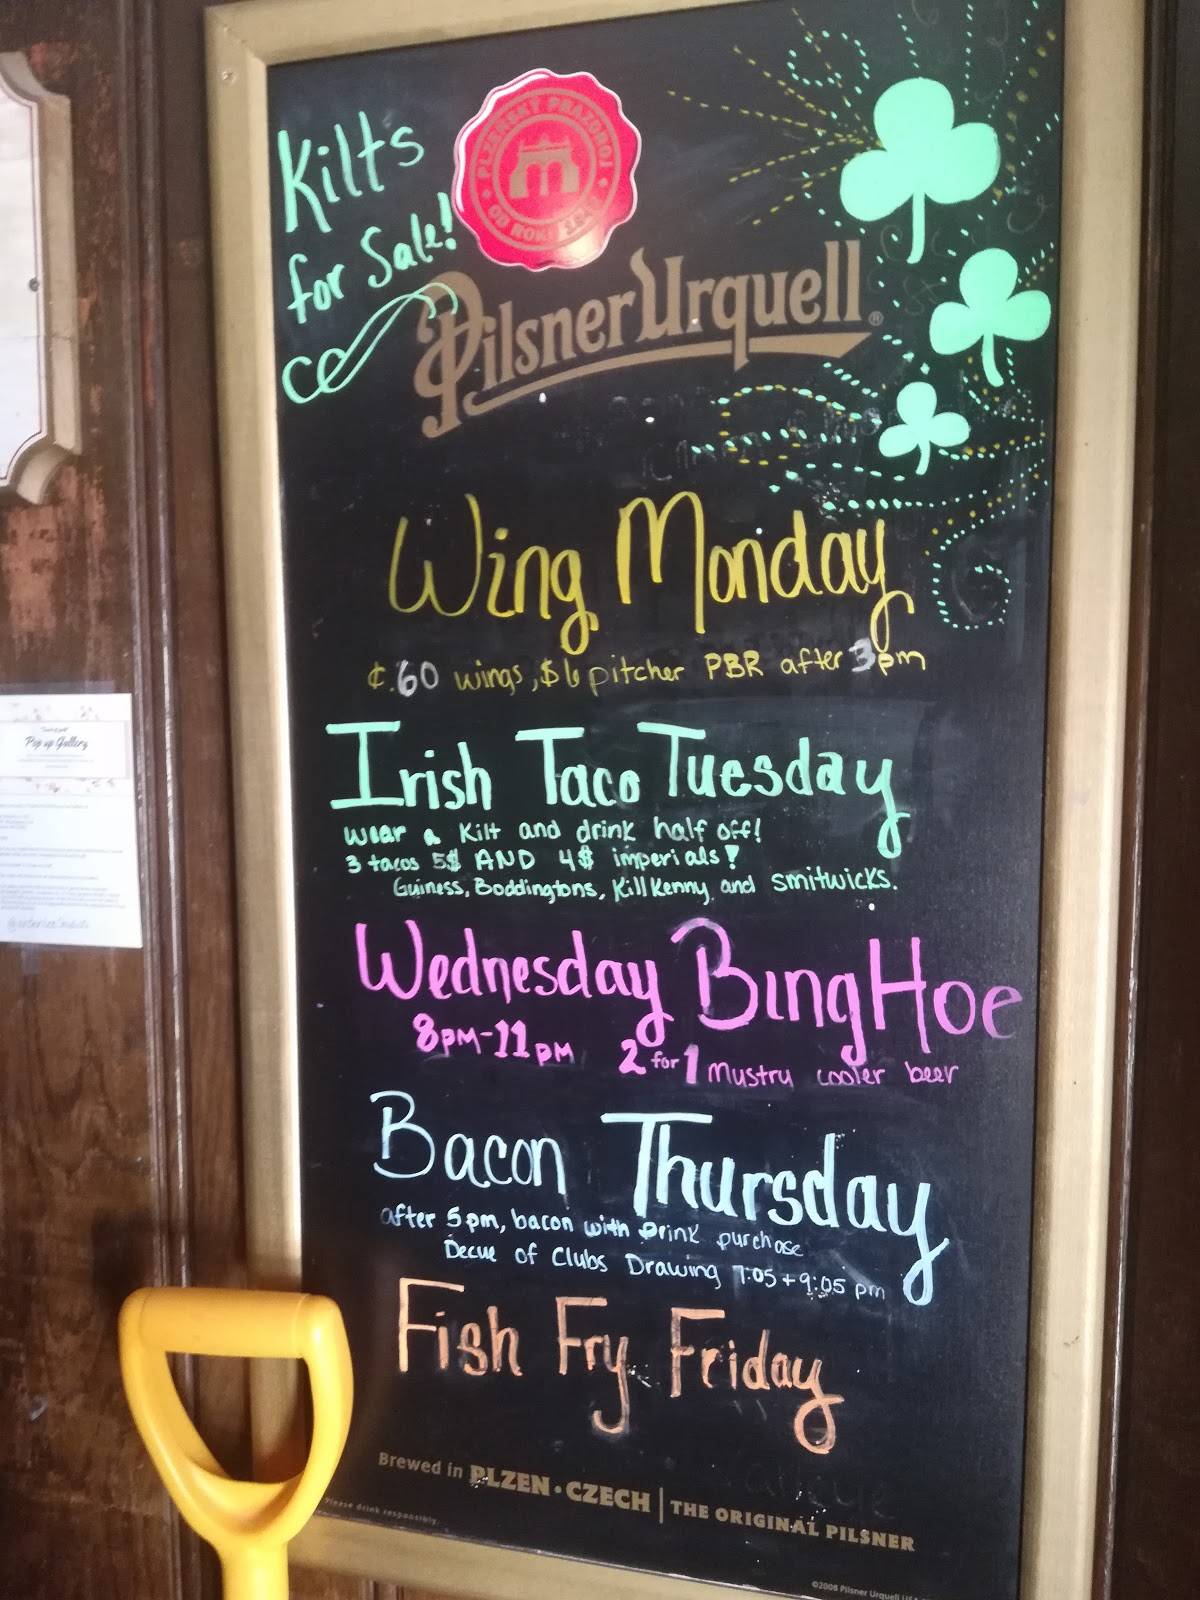 Kilts
for Sale!
PLZEŇSKÝ PRAZDROJ
OD ROKU 1842
Pilsner Urquell®
Wing Monday
¢.60 wings, $6 pitcher PBR after 3pm
Irish Taco Tuesday
wear a Kilt and drink half off!
3 tacos 5$ AND 4$ imperials!
Guiness, Boddingtons, Killkenny and smitwicks.
Wednesday BingHoe
8pm-11pm 2 for 1 Mustru cooler beer
Bacon Thursday
after 5pm, bacon with Drink purchase
Decue of Clubs Drawing 7:05+9:05 pm
Fish Fry Friday
Brewed in PLZEN • CZECH | THE ORIGINAL PILSNER
Please drink responsibly.
©2008 Pilsner Urquell
Pop up Gallery